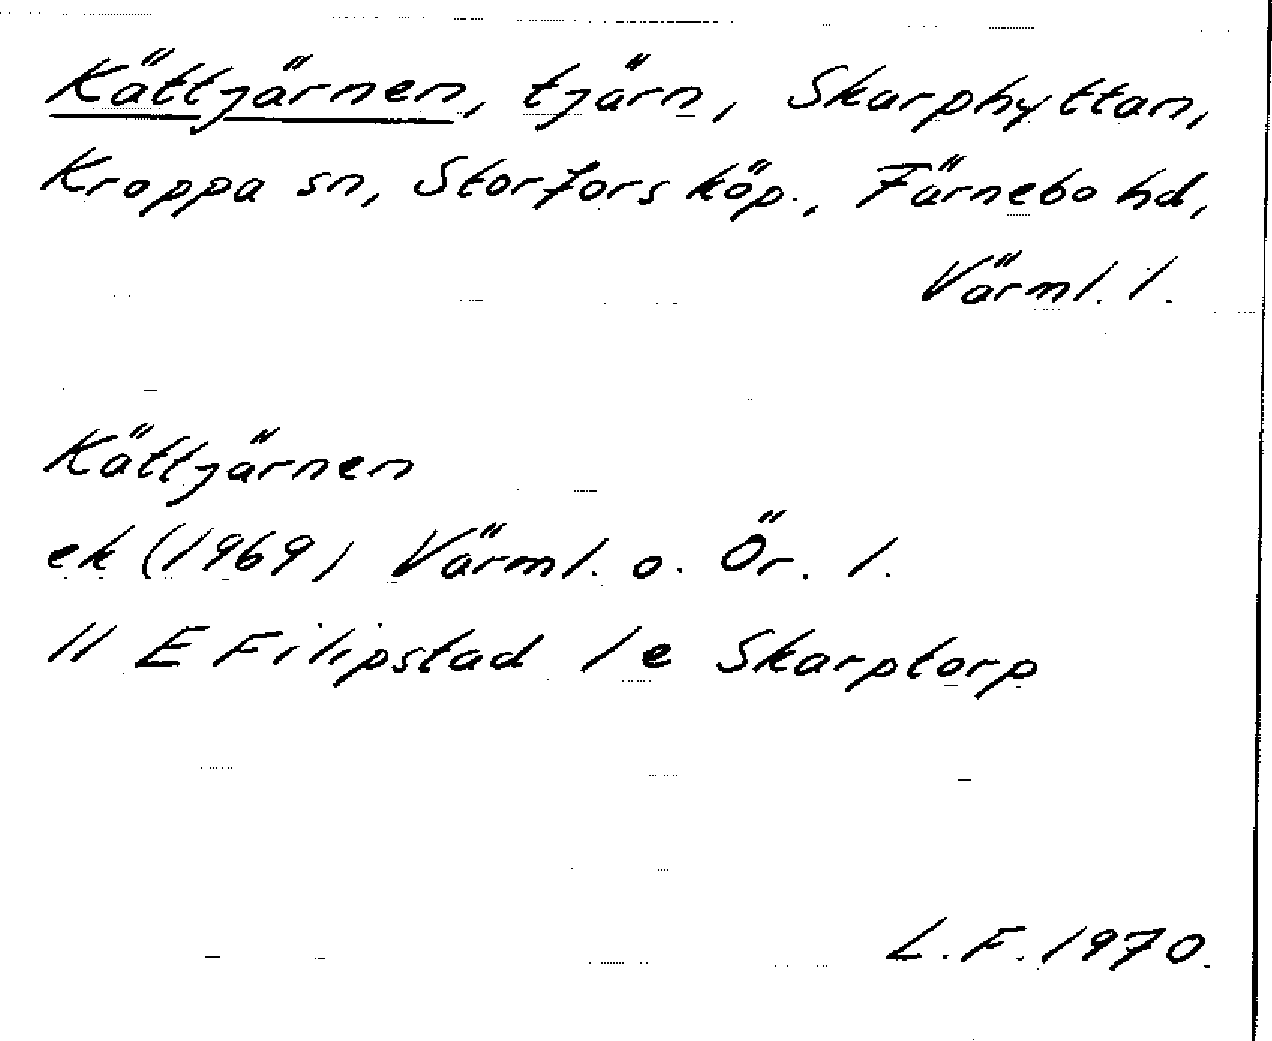 Kättjärnen, tjärn, Skarphyttan,
Kroppa sn, Storfors köp., Färnebo hd,
Värml. l.
Kättjärnen
ek (1969) Värml. o. Ör. l.
11 E Filipstad 1 e Skarptorp
L.F. 1970.